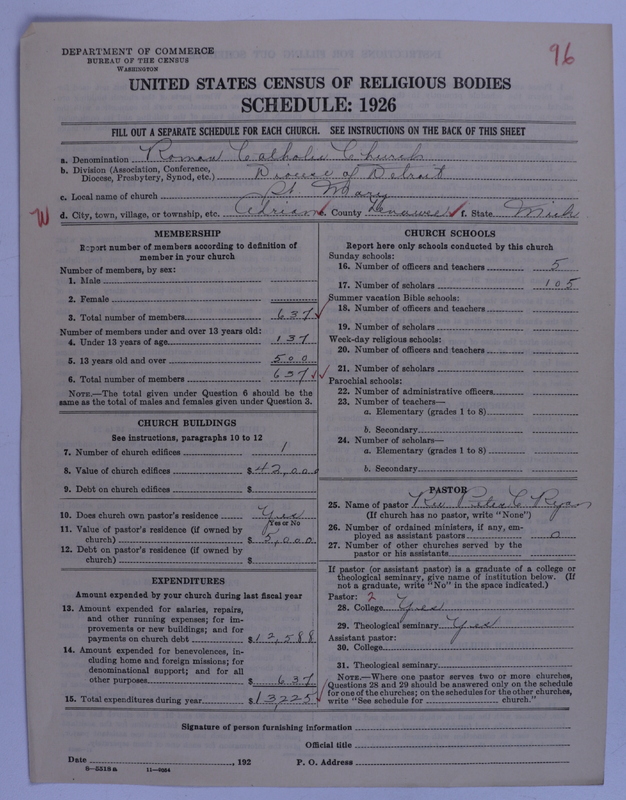 DEPARTMENT OF COMMERCE
BUREAU OF THE CENSUS
WASHINGTON
96
UNITED STATES CENSUS OF RELIGIOUS BODIES
SCHEDULE: 1926
FILL OUT A SEPARATE SCHEDULE FOR EACH CHURCH. SEE INSTRUCTIONS ON THE BACK OF THIS SHEET
a. Denomination Roman Catholic Church
b. Division (Association, Conference, Diocese, Presbytery, Synod, etc.) Diocese of Detroit
c. Local name of church St. Mary
W d. City, town, village, or township, etc. Adrian e. County Lenawee f. State Mich
MEMBERSHIP
Report number of members according to definition of
member in your church
Number of members, by sex:
1. Male
2. Female
3. Total number of members 637
Number of members under and over 13 years old:
4. Under 13 years of age 137
5. 13 years old and over 500
6. Total number of members 637
NOTE.—The total given under Question 6 should be the
same as the total of males and females given under Question 3.
CHURCH BUILDINGS
See instructions, paragraphs 10 to 12
7. Number of church edifices 1
8. Value of church edifices $42,000
9. Debt on church edifices $
10. Does church own pastor's residence? Yes
Yes or No
11. Value of pastor's residence (if owned by
church) $5,000
12. Debt on pastor's residence (if owned by
church) $
EXPENDITURES
Amount expended by your church during last fiscal year
13. Amount expended for salaries, repairs,
and other running expenses; for im-
provements or new buildings; and for
payments on church debt $12,588
14. Amount expended for benevolences, in-
cluding home and foreign missions; for
denominational support; and for all
other purposes $637
15. Total expenditures during year $13225
CHURCH SCHOOLS
Report here only schools conducted by this church
Sunday schools:
16. Number of officers and teachers 5
17. Number of scholars 105
Summer vacation Bible schools:
18. Number of officers and teachers
19. Number of scholars
Week-day religious schools:
20. Number of officers and teachers
21. Number of scholars
Parochial schools:
22. Number of administrative officers
23. Number of teachers—
a. Elementary (grades 1 to 8)
b. Secondary
24. Number of scholars—
a. Elementary (grades 1 to 8)
b. Secondary
PASTOR
25. Name of pastor Rev Peter C Ryan
(If church has no pastor, write "None")
26. Number of ordained ministers, if any, em-
ployed as assistant pastors 0
27. Number of other churches served by the
pastor or his assistants
If pastor (or assistant pastor) is a graduate of a college or
theological seminary, give name of institution below. (If
not a graduate, write "No" in the space indicated.)
Pastor: 2
28. College Yes
29. Theological seminary Yes
Assistant pastor:
30. College
31. Theological seminary
NOTE.—Where one pastor serves two or more churches,
Questions 28 and 29 should be answered only on the schedule
for one of the churches; on the schedules for the other churches,
write "See schedule for church."
Signature of person furnishing information
Official title
Date , 192 P. O. Address
8—5318a 11—9094